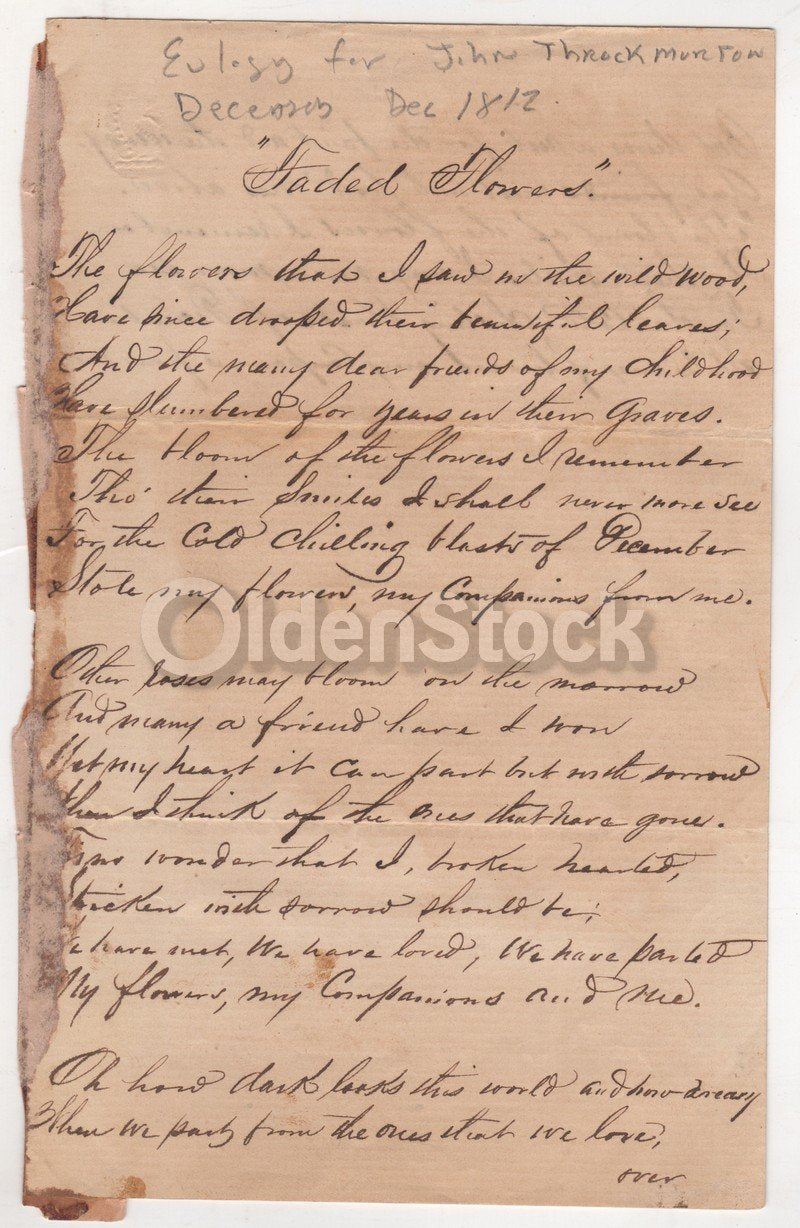 Eulogy for John Throckmorton
Dec 1812.
"Faded Flowers".
The flowers that I saw in the wild wood,
Have since drooped their beautiful leaves;
And the many dear friends of my Childhood
Have Slumbered for years in their Graves.
The bloom of the flowers I remember
Tho' their Smiles I shall never more see
For the Cold Chilling blasts of December
Stole my flowers, my Companions from me.
OldenStock
Other roses may bloom on the morrow
And many a friend have I won
Yet my heart it can part but with sorrow
When I think of the ones that have gone.
Tis no wonder that I, broken hearted,
Stricken with sorrow should be;
We have met, We have loved, We have parted
My flowers, my Companions and Me.
Oh how dark looks this world and how dreary
When we part from the ones that we love,
over